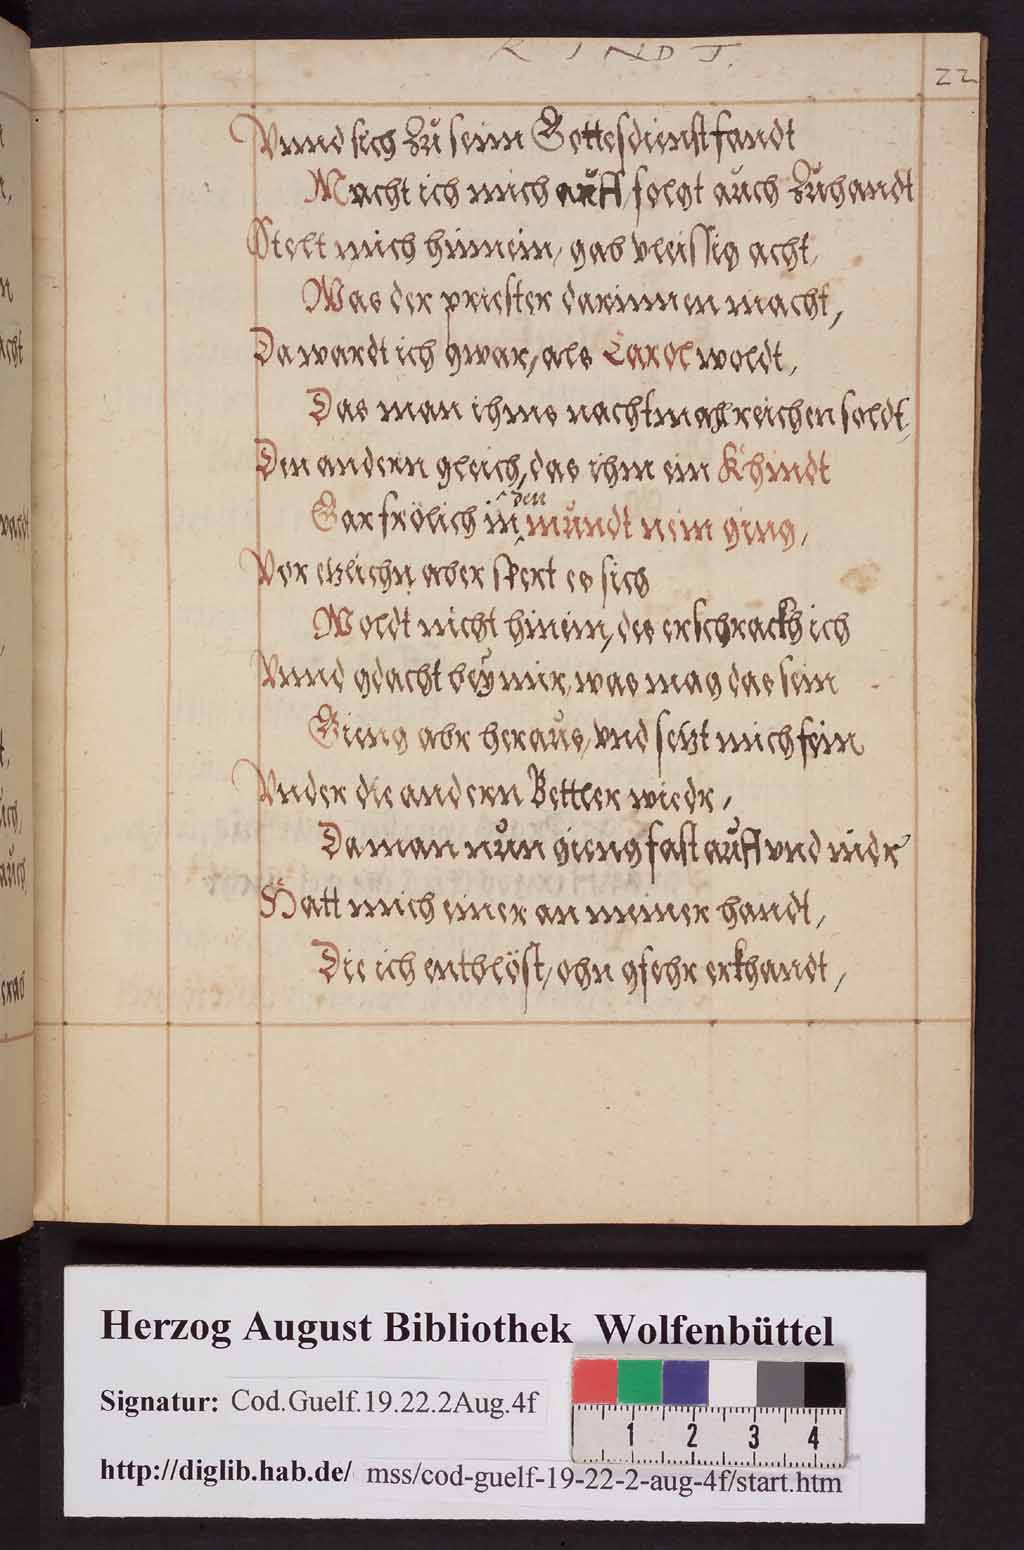 KINDT.
22
Vnnd sich Zu seim Gottesdienst fandt
Macht ich mich auff, folgt auch Zuhandt
Stelt mich hinnein, gab vleissig acht,
Was der priester darinnen macht,
Da wardt ich gwar, als Carol woldt,
Das man ihms nachtmahl reichen soldt,
Den andern gleich, das ihm ein Khindt
Gar frölich in den mundt nein ging,
Vor etzlichn aber spert es sich
Woldt nicht hinein, des erschrackh ich
Vnnd gdacht bey mir, was mag das sein
Gieng abr heraus, vnd setzt mich fein
Vnder die andern Bettler wiedr,
Da man nun gieng fast auff vnd nidr
Hatt mich einer an meiner handt,
Die ich entblöst, ohn gfehr erkhandt,
Herzog August Bibliothek Wolfenbüttel
Signatur: Cod.Guelf.19.22.2Aug.4f
1 2 3 4
http://diglib.hab.de/ mss/cod-guelf-19-22-2-aug-4f/start.htm